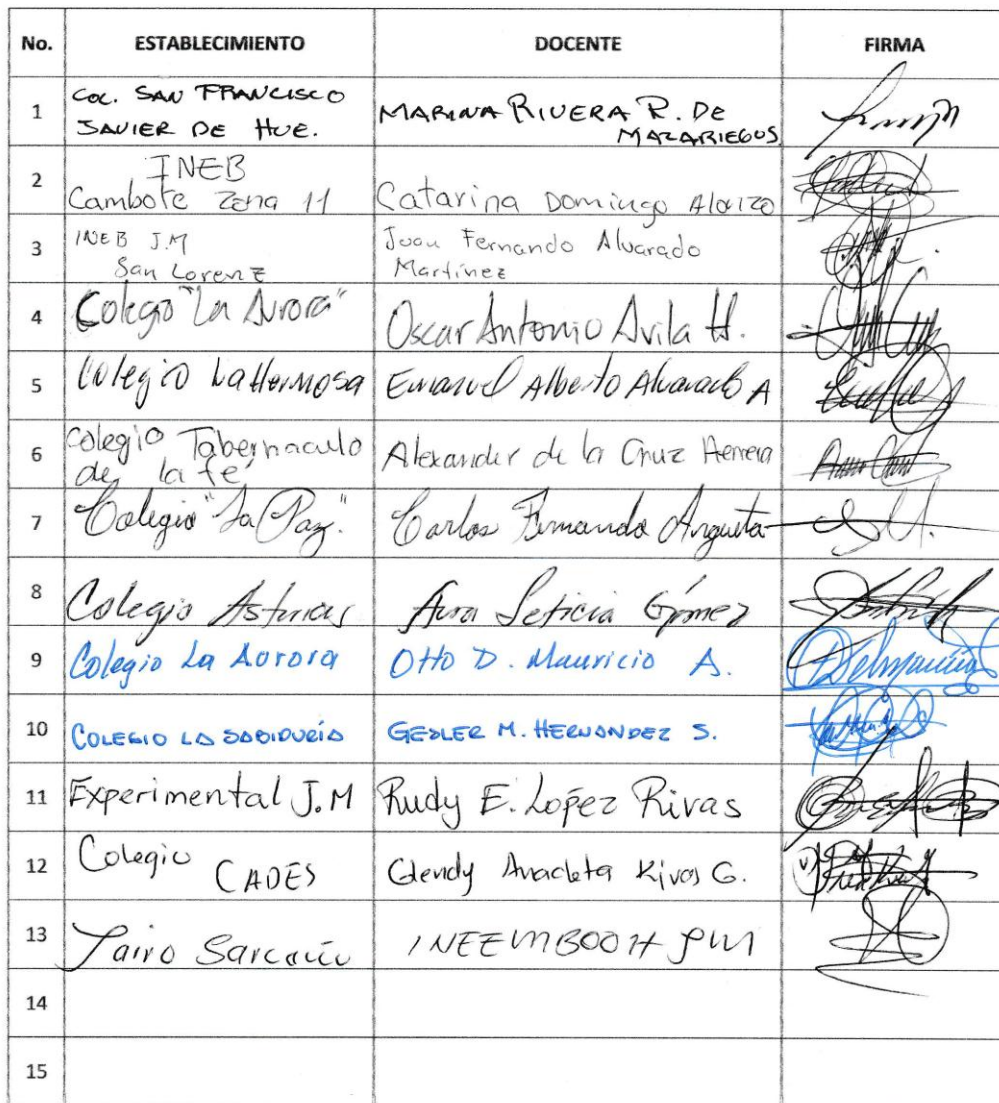 No. ESTABLECIMIENTO DOCENTE FIRMA
1 COL. SAN FRANCISCO
JAVIER DE HUE. MARINA RIVERA R. DE
MAZARIEGOS
2 INEB
Cambote zona 11 Catarina Domingo Alonzo
3 INEB J.M
San Lorenz Juan Fernando Alvarado
Martínez
4 Colegio "La Aurora" Oscar Antonio Avila H.
5 Colegio La Hermosa Emanuel Alberto Alvarado A
6 Colegio Tabernaculo
de la fé Alexander de la Cruz Herrera
7 Colegio "La Paz". Carlos Fernando Argueta
8 Colegio Asturias Aura Leticia Gómez
9 Colegio La Aurora Otto D. Mauricio A.
10 COLEGIO LA SABIDURÍA GESLER M. HERNANDEZ S.
11 Experimental J.M Rudy E. López Rivas
12 Colegio
CADES Glendy Anacleta Rivas G.
13 Jairo
14
15